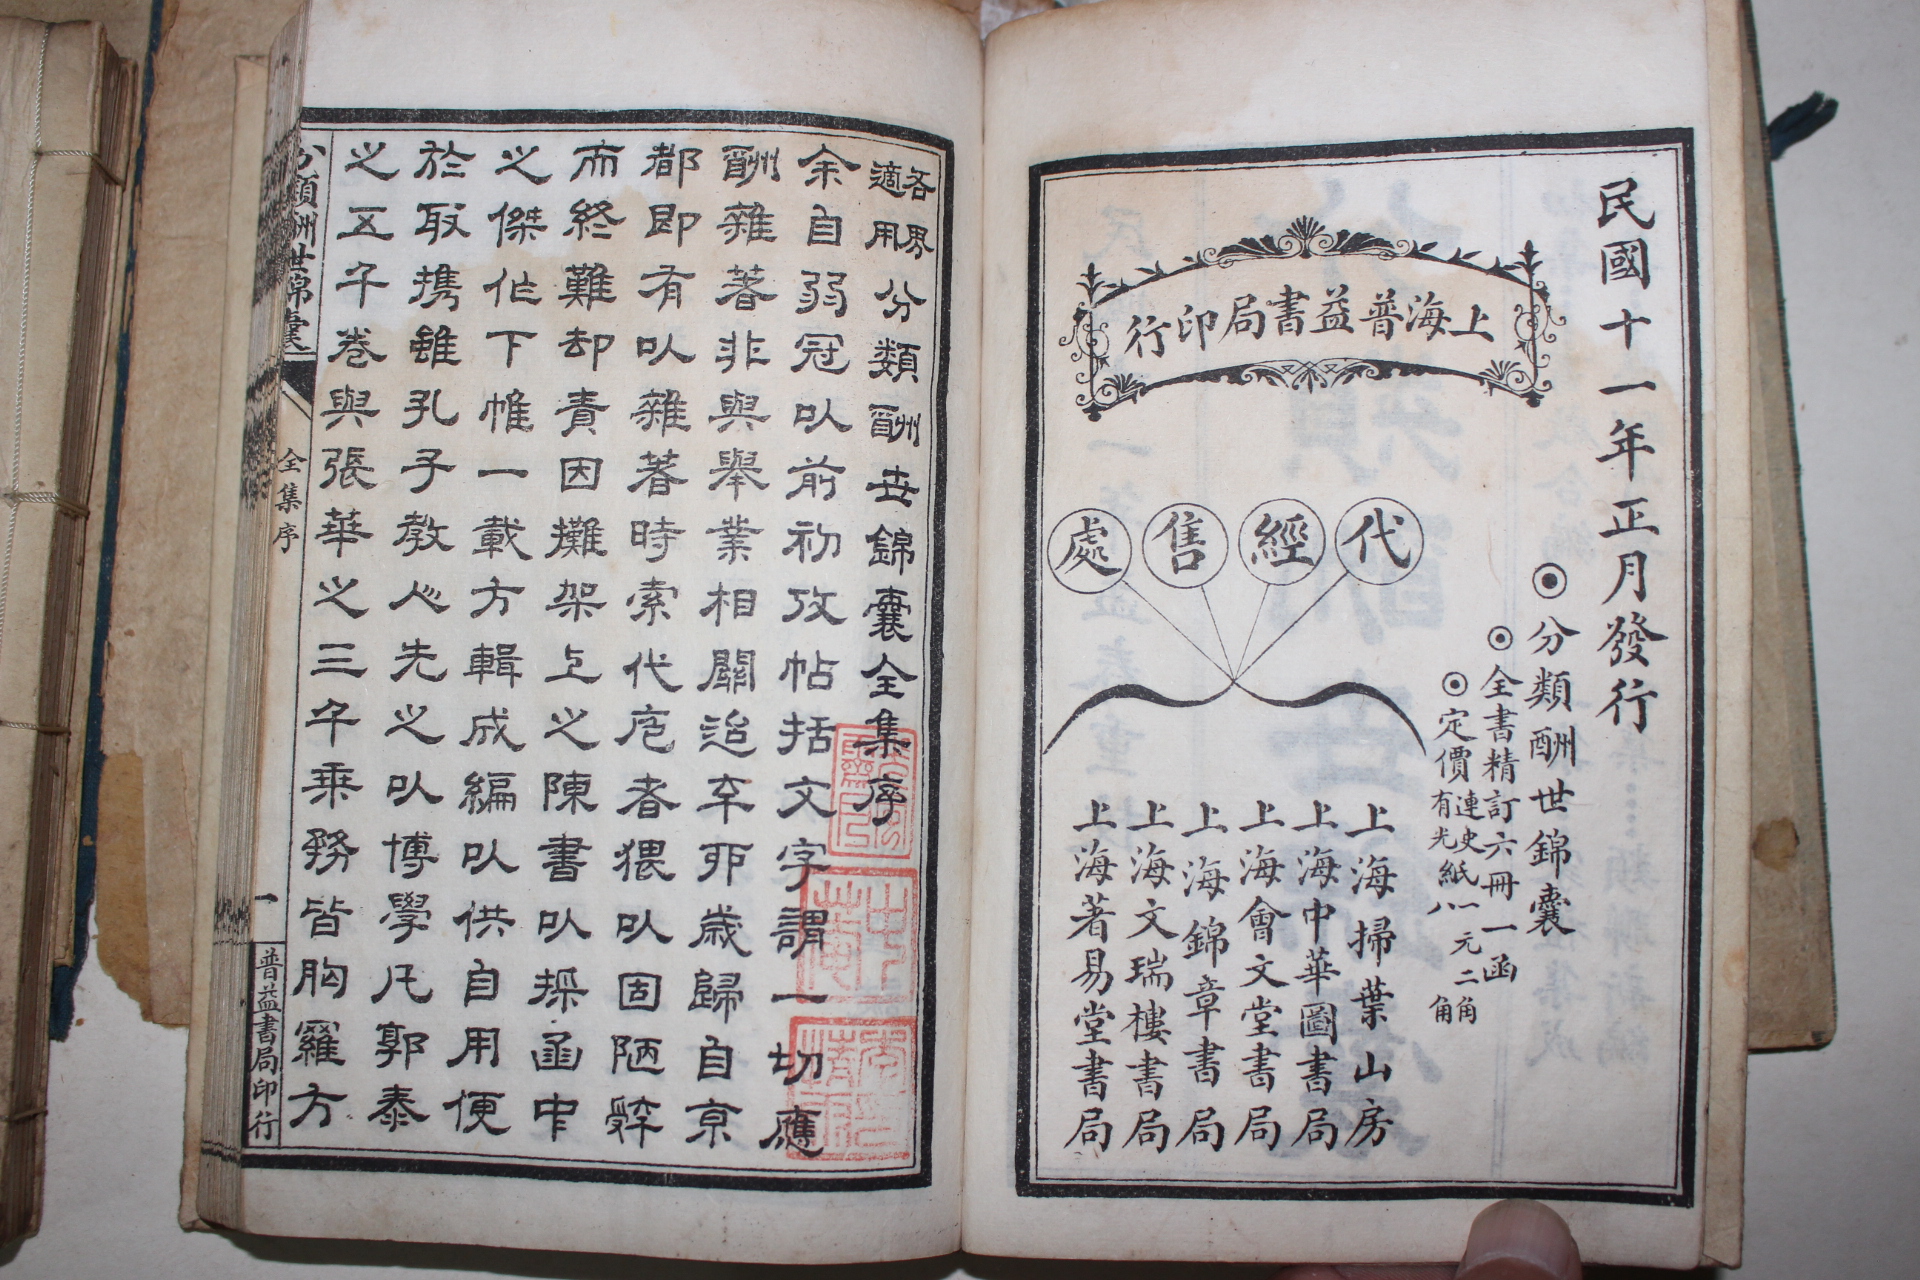 民國十一年正月發行
◉分類酬世錦囊
⊙全書精訂六冊一函
⊙定價
連史紙一元二角
有光紙八角
上海普益書局印行
代經售處
上海掃葉山房
上海中華圖書局
上海會文堂書局
上海錦章書局
上海文瑞樓書局
上海著易堂書局
各界適用分類酬世錦囊全集序
余自弱冠以前初攷帖括文字謂一切應
酬雜著非與舉業相關迨辛卯歲歸自京
都即有以雜著時索代庖者猥以固陋辤
而終難却責因攤架上之陳書以採函中
之傑作下帷一載方輯成編以供自用便
於取携雖孔子教人先之以博學凡郭泰
之五千卷與張華之三千乘務皆胸羅方
分類酬世錦囊
全集序
一
普益書局印行